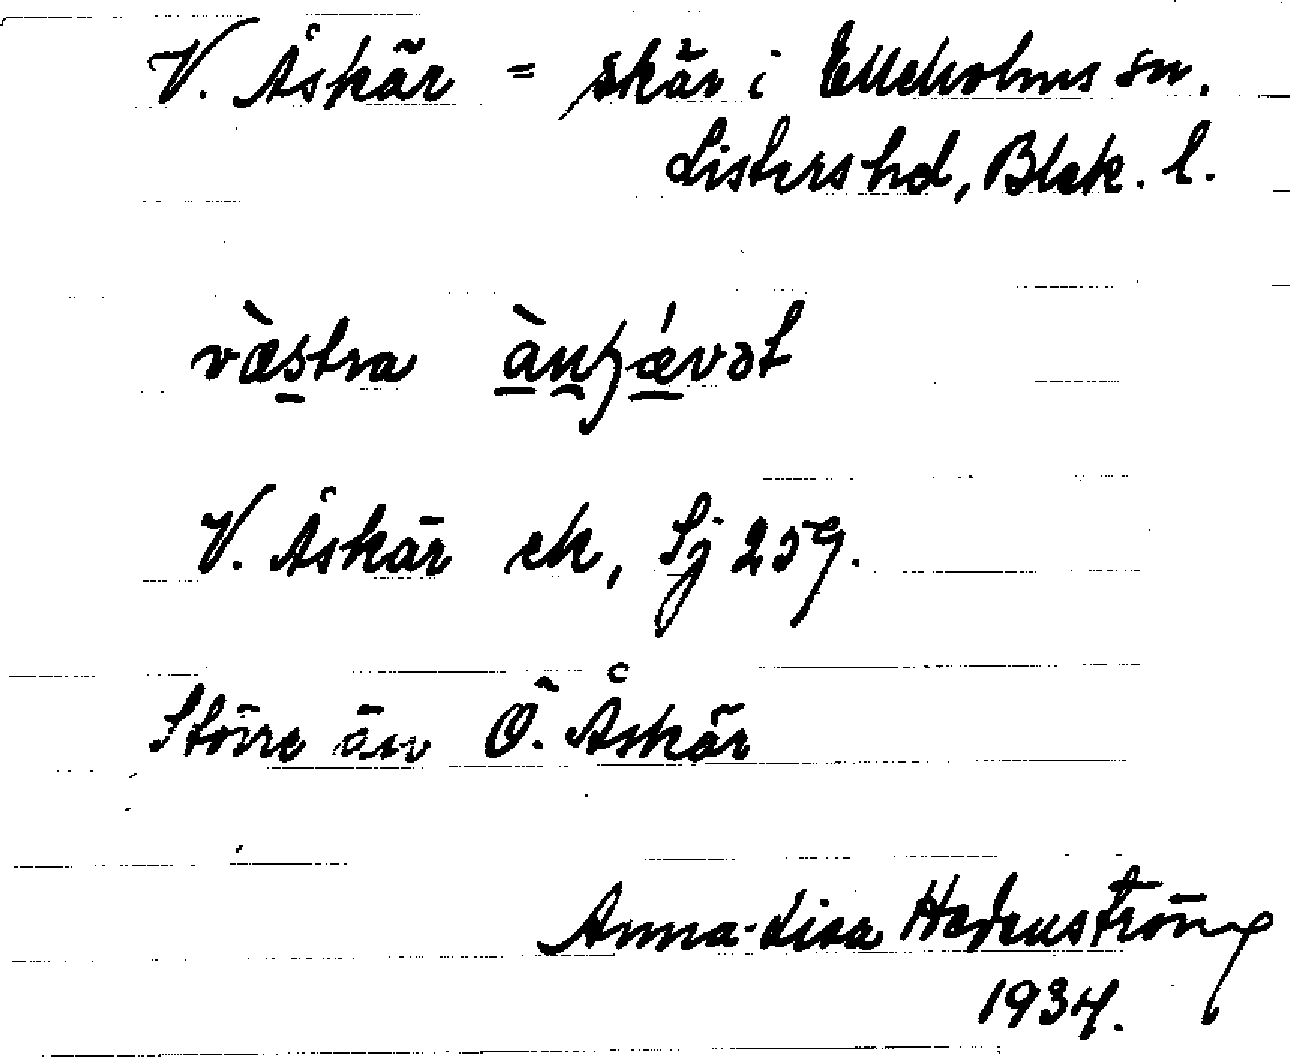 V. Åskär = skär i Elleholms sn.
Listers hd, Blek. l.
västra
V. Åskär ek, Sj 259.
Större än Ö. Åskär
Anna-Lisa Hedenström
1934.